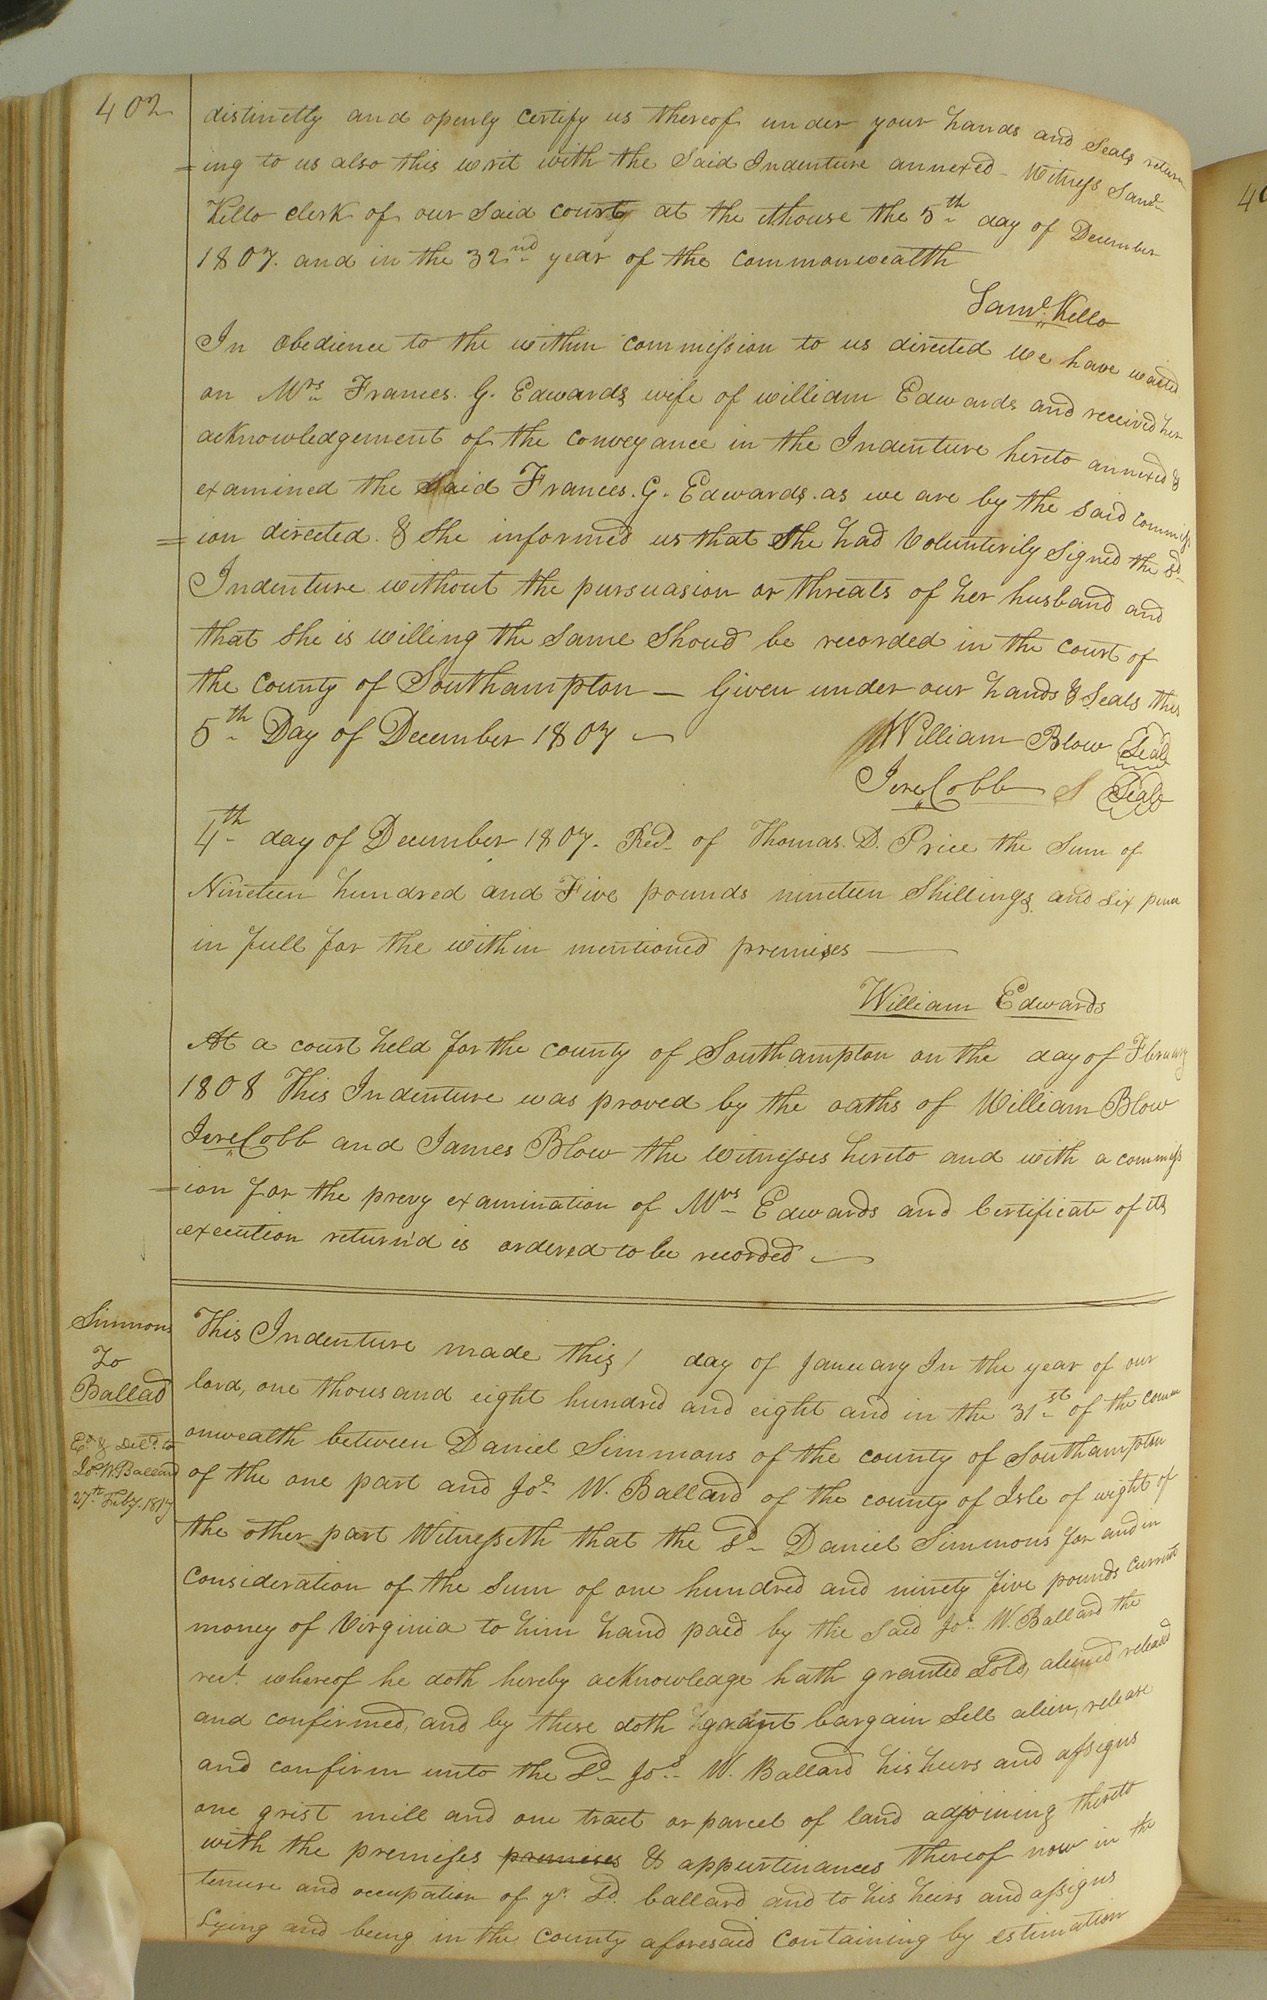 402
distinctly and openly certify us thereof under your hands and Seals return
=ing to us also this writ with the Said Indenture annexed - Witness Saml
Kello clerk of our Said court at the cthouse the 5th day of December
1807. and in the 32nd year of the commonwealth
Saml. Kello
In obedience to the within commission to us directed we have waited
on Mrs Frances. G. Edwards wife of william Edwards and received her
acknowledgement of the conveyance in the Indenture hereto annexed &
examined the said Frances. G. Edwards. as we are by the said commiss
=ion directed. & She informed us that She had Volunterily Signed the sd
Indenture without the pursuasion or threats of her husband and
that she is willing the Same Shoud be recorded in the court of
the county of Southampton — Given under our hands & Seals this
5th Day of December 1807 —
William Blow Seal
Jere Cobb S Seal
4th day of December 1807. Recd of Thomas. D. Price the Sum of
Nineteen hundred and Five pounds nineteen Shillings and six pence
in full for the within mentioned premises —
William Edwards
At a court held for the county of Southampton on the day of Februay
1808 This Indenture was proved by the oaths of William Blow
Jere Cobb and James Blow the witnesses hereto and with a commiss
=ion for the prevy examination of Mrs Edwards and Certificate of its
execution return'd is ordered to be recorded —
Simmons
To
Ballad
Ex. & Deld. to
Jos. W. Ballard
27th Feby. 1817
This Indenture made this 1 day of January In the year of our
lord, one thousand eight hundred and eight and in the 31st of the comm
onwealth between Daniel Simmons of the county of Southampton
of the one part and Jos. W. Ballard of the county of Isle of wight of
the other part Witnesseth that the sd Daniel Simmons for and in
consideration of the Sum of one hundred and ninety five pounds current
money of Virginia to him hand paid by the Said Jos. W. Ballard the
rect. whereof he doth hereby acknowledge hath granted Sold, aliened released
and confirmed, and by these doth grant bargain Sell alien, release
and confirm unto the Sd Jos. W. Ballard his heirs and assigns
one grist mill and one tract or parcel of land adjoining thereto
with the premises premises & appurtinances thereof now in the
tenure and occupation of ye Sd ballard and to his heirs and assigns
Lying and being in the county aforesaid Containing by estimation